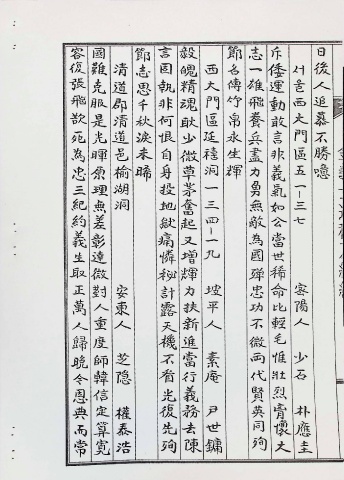 日後人追慕不勝噫
서울西大門區五一三七 密陽人 少石 朴應圭
斥倭運動敢言非義氣如公當世稀命比輕毛惟壯烈膏懷大
志一雄飛養兵盡力勇無敵為國殫忠功不微兩代賢英同殉
節名傳竹帛永生輝
西大門區延禧洞一三四一一九 坡平人 素庵 尹世鏞
毅魄精魂耿少微草茅奮起又增輝力扶新進當行義務去陳
言固執非何恨自身投地獄痛憐秘計露天機不看光復先殉
節志思千秋淚未晞
清道郡清道邑榆湖洞 安東人 芝隐 權泰浩
國難克服是光暉原理無差彰達微對人重度師韓信定算寬
容復張飛欲死為忠三紀約義生取正萬人歸晚令恩典而常